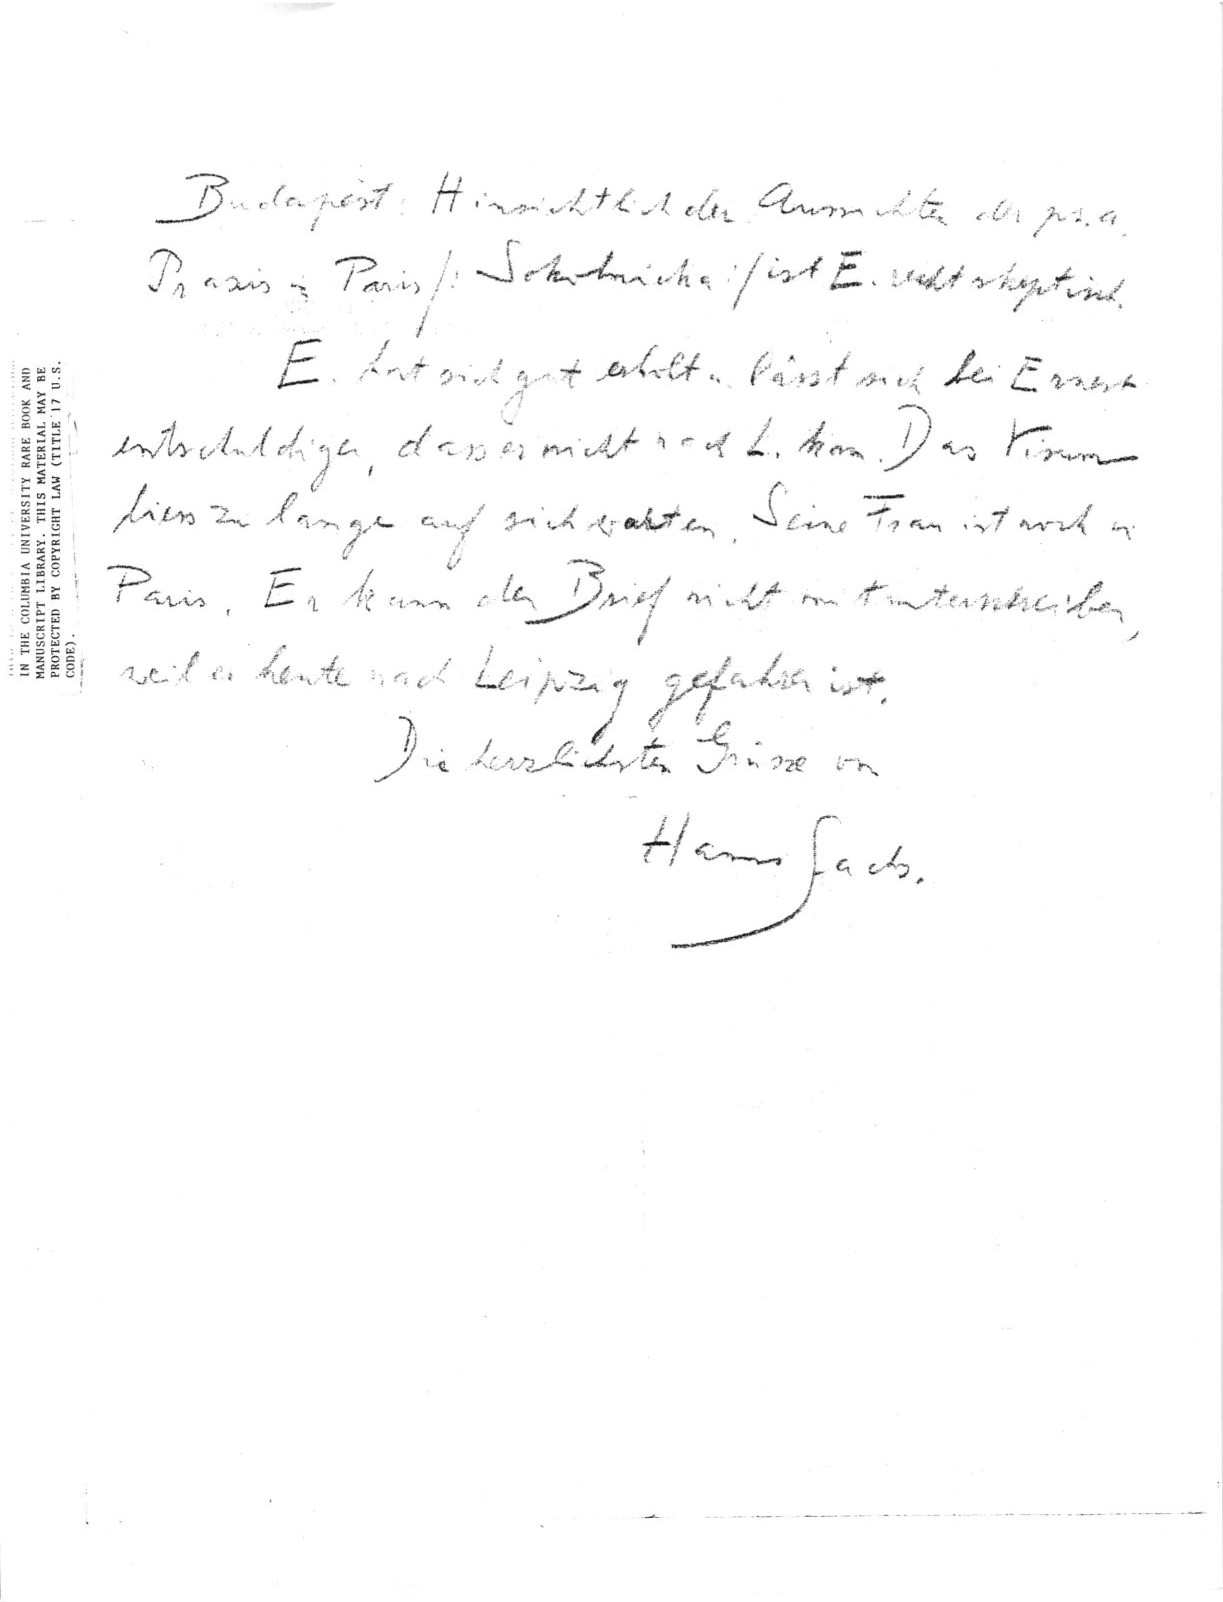 Budapest: Hinsichtlich der Aussichten der ps.a.
Praxis in Paris /: Sokolnicka :/ ist E. recht skeptisch.
E. hat sich gut erholt u. lässt sich bei Ernest
entschuldigen, dass er nicht nach L. kam. Das Visum
liess zu lange auf sich warten. Seine Frau ist noch in
Paris. Er kann den Brief nicht mitunterschreiben,
weil er heute nach Leipzig gefahren ist.
Die herzlichsten Grüsse von
Hanns Sachs.
IN THE COLUMBIA UNIVERSITY RARE BOOK AND
MANUSCRIPT LIBRARY. THIS MATERIAL MAY BE
PROTECTED BY COPYRIGHT LAW (TITLE 17 U.S.
CODE).